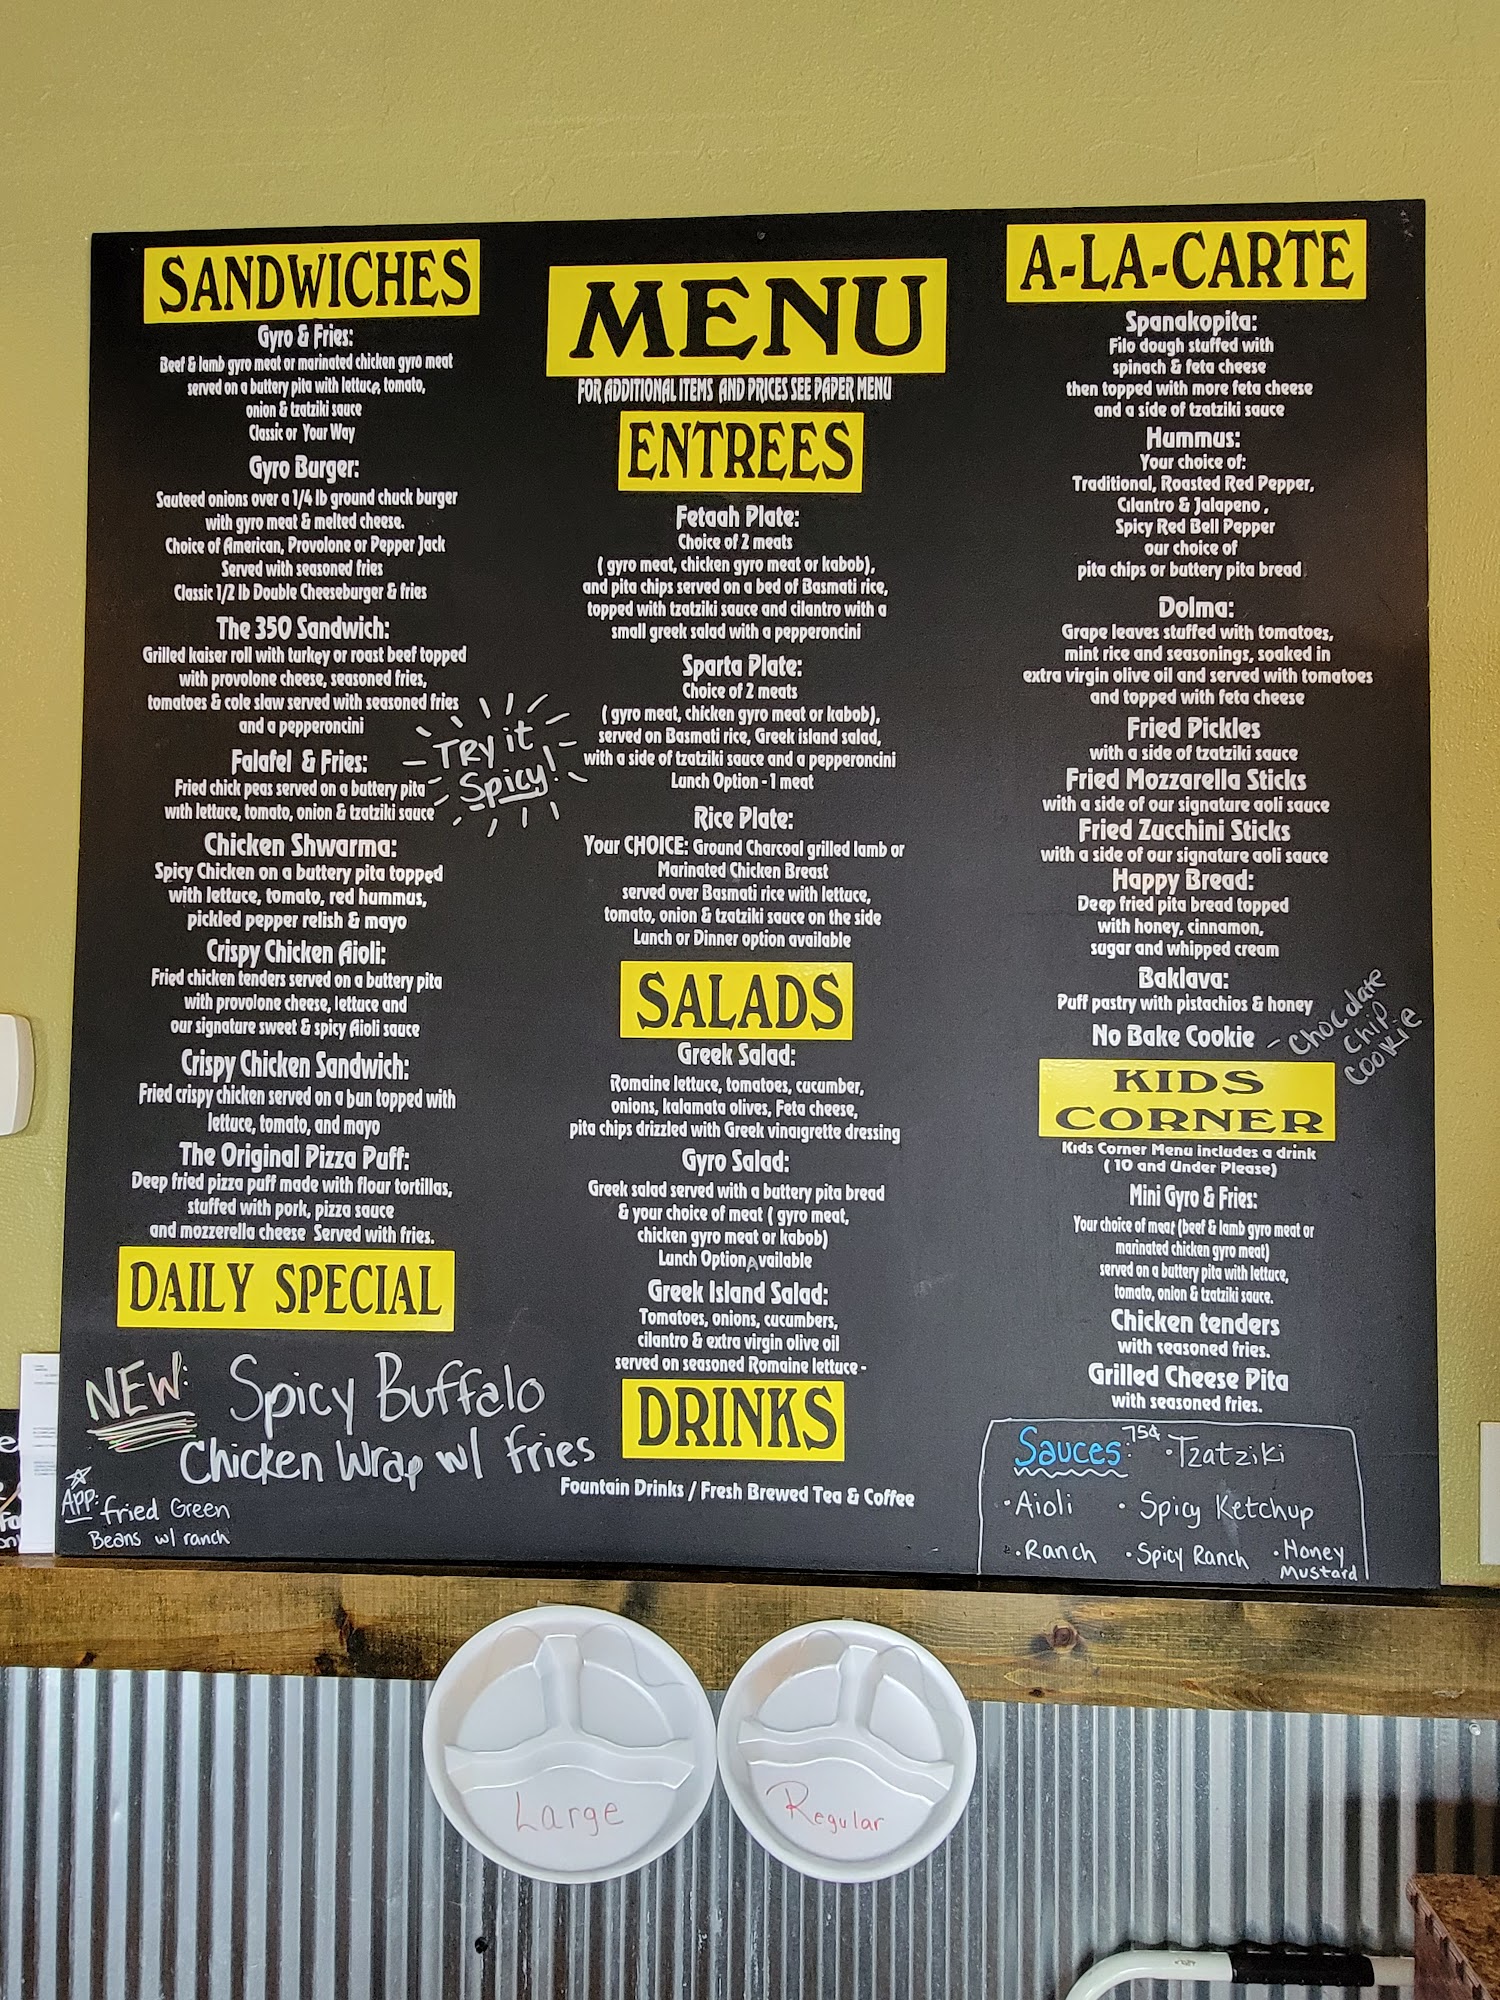 SANDWICHES
Gyro & Fries:
Beef & lamb gyro meat or marinated chicken gyro meat
served on a buttery pita with lettuce, tomato,
onion & tzatziki sauce
Classic or Your Way
Gyro Burger:
Sauteed onions over a 1/4 lb ground chuck burger
with gyro meat & melted cheese.
Choice of American, Provolone or Pepper Jack
Served with seasoned fries
Classic 1/2 lb Double Cheeseburger & fries
The 350 Sandwich:
Grilled kaiser roll with turkey or roast beef topped
with provolone cheese, seasoned fries,
tomatoes & cole slaw served with seasoned fries
and a pepperoncini
Falafel & Fries:
Fried chick peas served on a buttery pita
with lettuce, tomato, onion & tzatziki sauce
TRy it
Spicy!
Chicken Shwarma:
Spicy Chicken on a buttery pita topped
with lettuce, tomato, red hummus,
pickled pepper relish & mayo
Crispy Chicken Aioli:
Fried chicken tenders served on a buttery pita
with provolone cheese, lettuce and
our signature sweet & spicy Aioli sauce
Crispy Chicken Sandwich:
Fried crispy chicken served on a bun topped with
lettuce, tomato, and mayo
The Original Pizza Puff:
Deep fried pizza puff made with flour tortillas,
stuffed with pork, pizza sauce
and mozzerella cheese Served with fries.
DAILY SPECIAL
NEW: Spicy Buffalo
Chicken Wrap w/ fries
APP: fried Green
Beans w/ ranch
MENU
FOR ADDITIONAL ITEMS AND PRICES SEE PAPER MENU
ENTREES
Fetaah Plate:
Choice of 2 meats
( gyro meat, chicken gyro meat or kabob),
and pita chips served on a bed of Basmati rice,
topped with tzatziki sauce and cilantro with a
small greek salad with a pepperoncini
Sparta Plate:
Choice of 2 meats
( gyro meat, chicken gyro meat or kabob),
served on Basmati rice, Greek island salad,
with a side of tzatziki sauce and a pepperoncini
Lunch Option - 1 meat
Rice Plate:
Your CHOICE: Ground Charcoal grilled lamb or
Marinated Chicken Breast
served over Basmati rice with lettuce,
tomato, onion & tzatziki sauce on the side
Lunch or Dinner option available
SALADS
Greek Salad:
Romaine lettuce, tomatoes, cucumber,
onions, kalamata olives, Feta cheese,
pita chips drizzled with Greek vinaigrette dressing
Gyro Salad:
Greek salad served with a buttery pita bread
& your choice of meat ( gyro meat,
chicken gyro meat or kabob)
Lunch Option Available
Greek Island Salad:
Tomatoes, onions, cucumbers,
cilantro & extra virgin olive oil
served on seasoned Romaine lettuce -
DRINKS
Fountain Drinks / Fresh Brewed Tea & Coffee
A-LA-CARTE
Spanakopita:
Filo dough stuffed with
spinach & feta cheese
then topped with more feta cheese
and a side of tzatziki sauce
Hummus:
Your choice of:
Traditional, Roasted Red Pepper,
Cilantro & Jalapeno ,
Spicy Red Bell Pepper
our choice of
pita chips or buttery pita bread
Dolma:
Grape leaves stuffed with tomatoes,
mint rice and seasonings, soaked in
extra virgin olive oil and served with tomatoes
and topped with feta cheese
Fried Pickles
with a side of tzatziki sauce
Fried Mozzarella Sticks
with a side of our signature aoli sauce
Fried Zucchini Sticks
with a side of our signature aoli sauce
Happy Bread:
Deep fried pita bread topped
with honey, cinnamon,
sugar and whipped cream
Baklava:
Puff pastry with pistachios & honey
No Bake Cookie
- Chocolate
Chip
Cookie
KIDS
CORNER
Kids Corner Menu includes a drink
( 10 and Under Please)
Mini Gyro & Fries:
Your choice of meat (beef & lamb gyro meat or
marinated chicken gyro meat)
served on a buttery pita with lettuce,
tomato, onion & tzatziki sauce.
Chicken tenders
with seasoned fries.
Grilled Cheese Pita
with seasoned fries.
Sauces: 75¢ • Tzatziki
• Aioli • Spicy Ketchup
• Ranch • Spicy Ranch • Honey
Mustard
Large
Regular